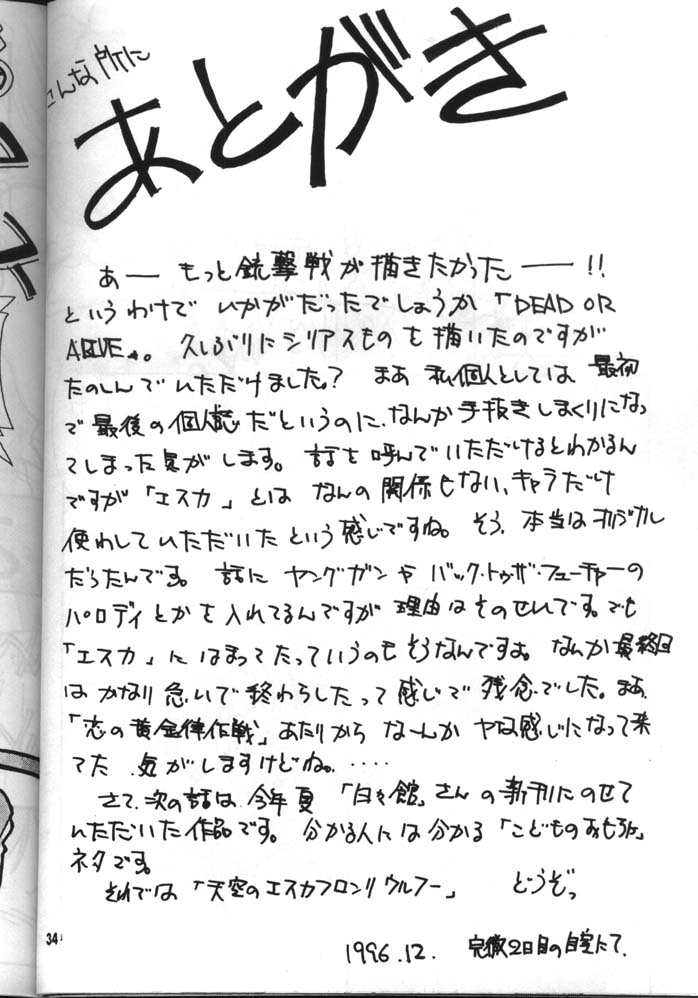 こんな所に
あとがき
あー もっと銃撃戦が描きたかったー!!
というわけで いかがだったでしょうか「DEAD OR
ALIVE」。 久しぶりにシリアスものを描いたのですが
たのしんでいただけました? まあ 私個人としては 最初
で最後の個人誌だというのに、なんか手抜きしまくりになっ
てしまった気がします。 話を呼んでいただけるとわかるん
ですが「エスカ」とは なんの関係もない、キャラだけ
使わしていただいたという感じですね。 そう、本当はオリジナル
だったんです。 話に ヤングガンや バック・トゥ・ザ・フューチャーの
パロディとかを入れてるんですが 理由はそのせいです。でも
「エスカ」に はまってたっていうのもそうなんですよ。なんか最終回
はかなり急いで終わらしたって感じで残念でした。まあ
「恋の黄金律作戦」あたりから なーんか ヤな感じになって来
てた 気がしますけどね。‥‥
さて、次の話は、今年夏 「白々館」さんの新刊にのせて
いただいた作品です。 分かる人には分かる「こどものおもちゃ」
ネタです。
それでは「天空のエスカフロンリウルフー」 どうぞっ
34
1996.12. 完徹2日目の自室にて.